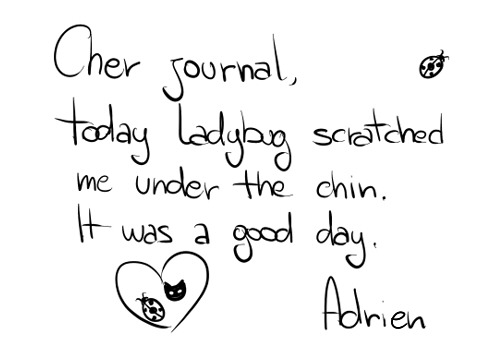 Cher journal,
today Ladybug scratched
me under the chin.
It was a good day.
Adrien